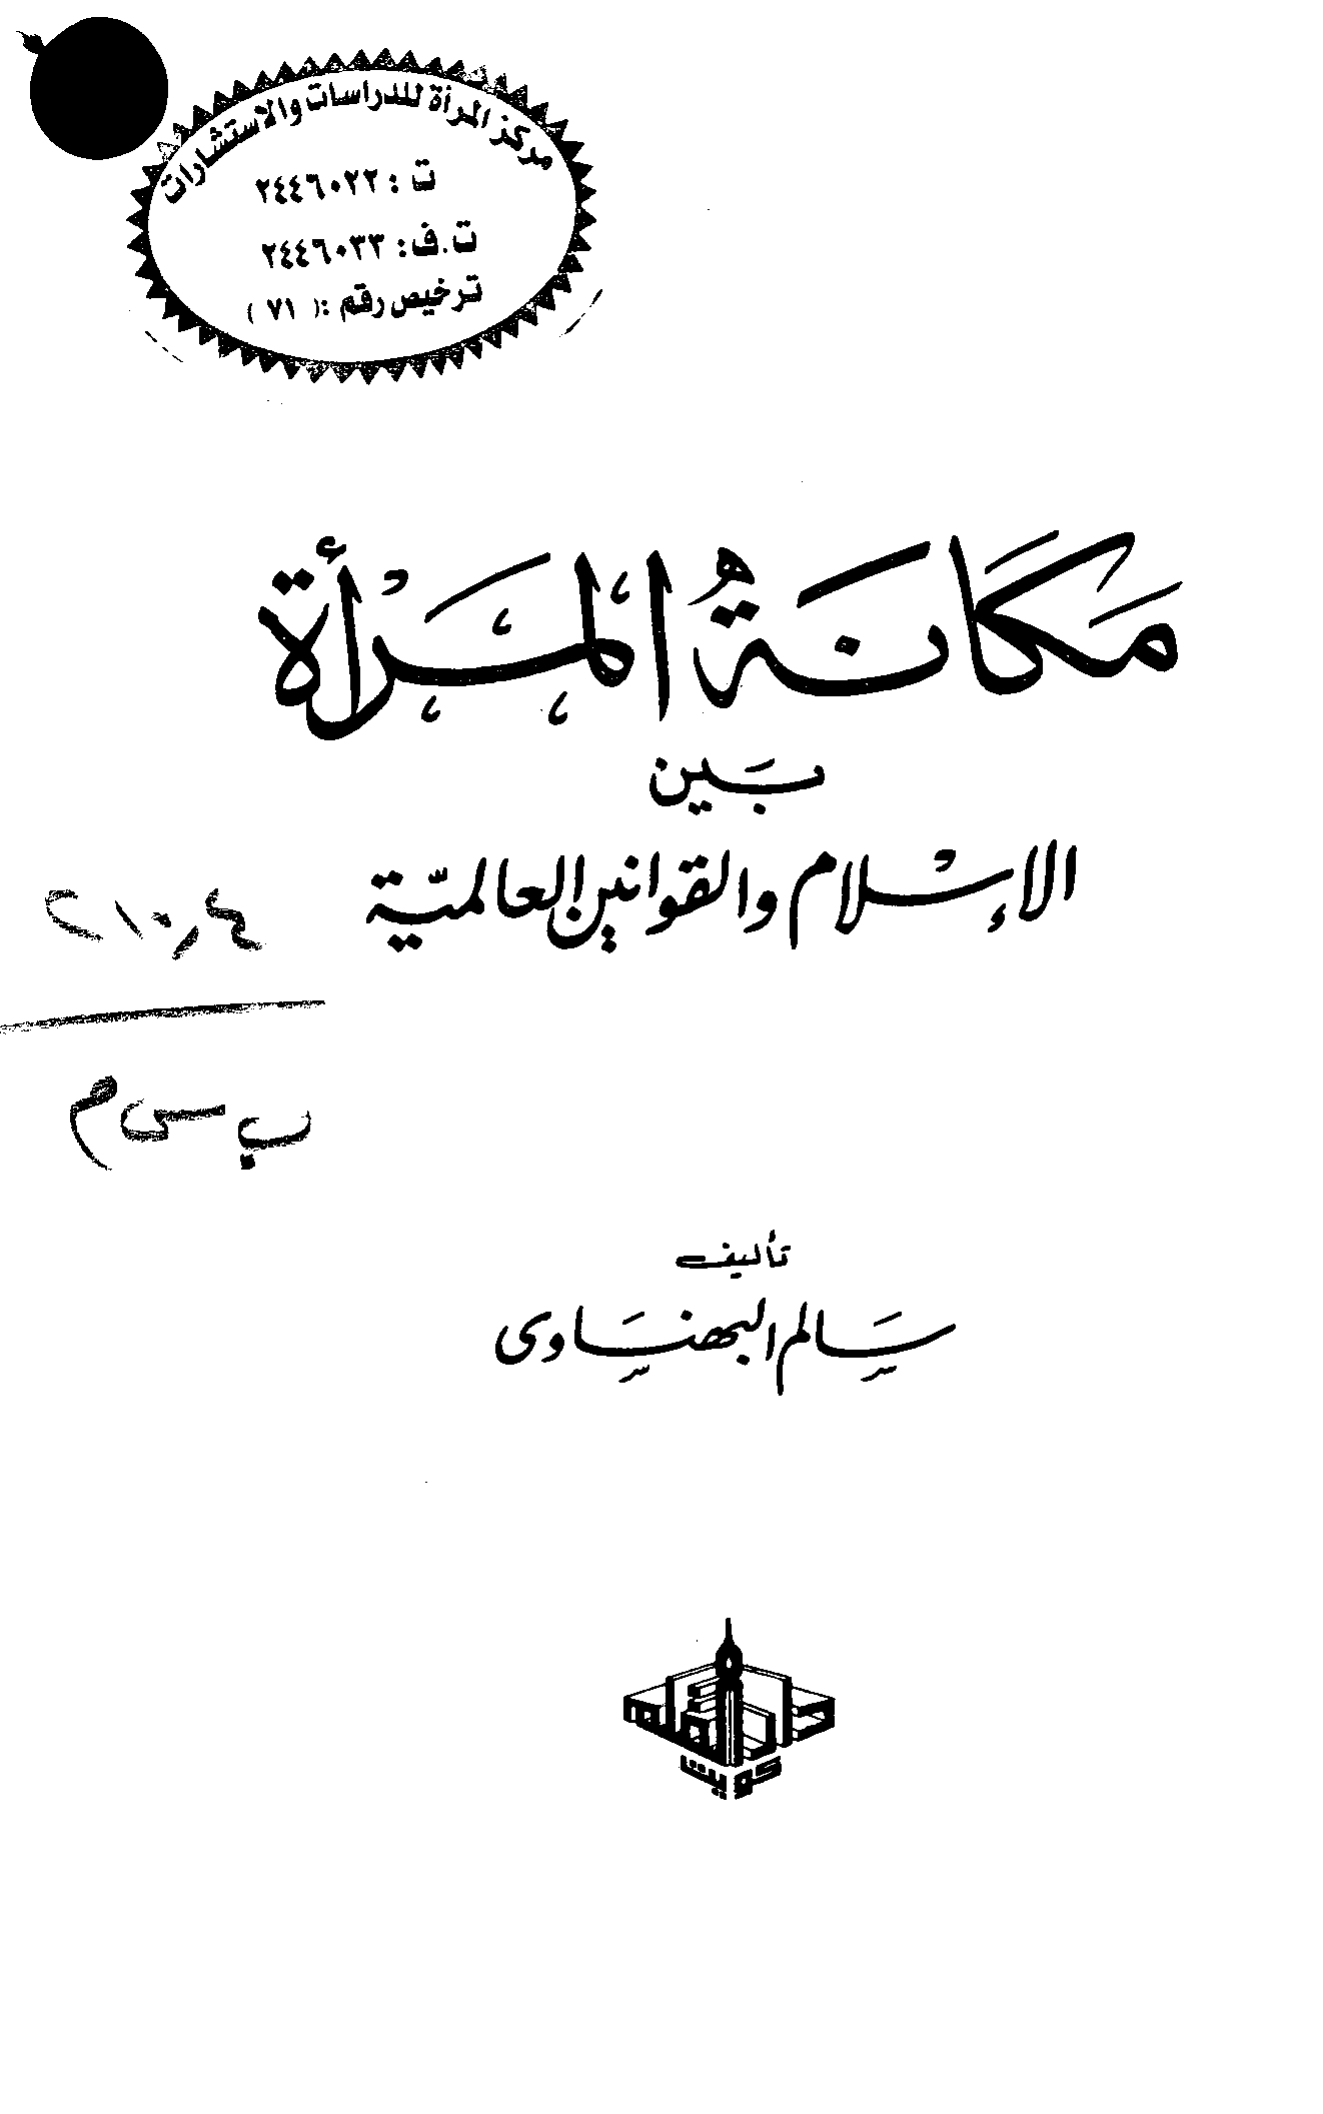 مركز المرأة للدراسات والاستشارات
ت : ٢٤٤٦٠٢٢
ت.ف: ٢٤٤٦٠٣٣
ترخيص رقم :( ٧١ )
مَكَانَةُ المَرْأة
بَين
الإسْلام والقوانين العالميّة
ب س م
تأليف
سَالم البهنسَاوى
كويت